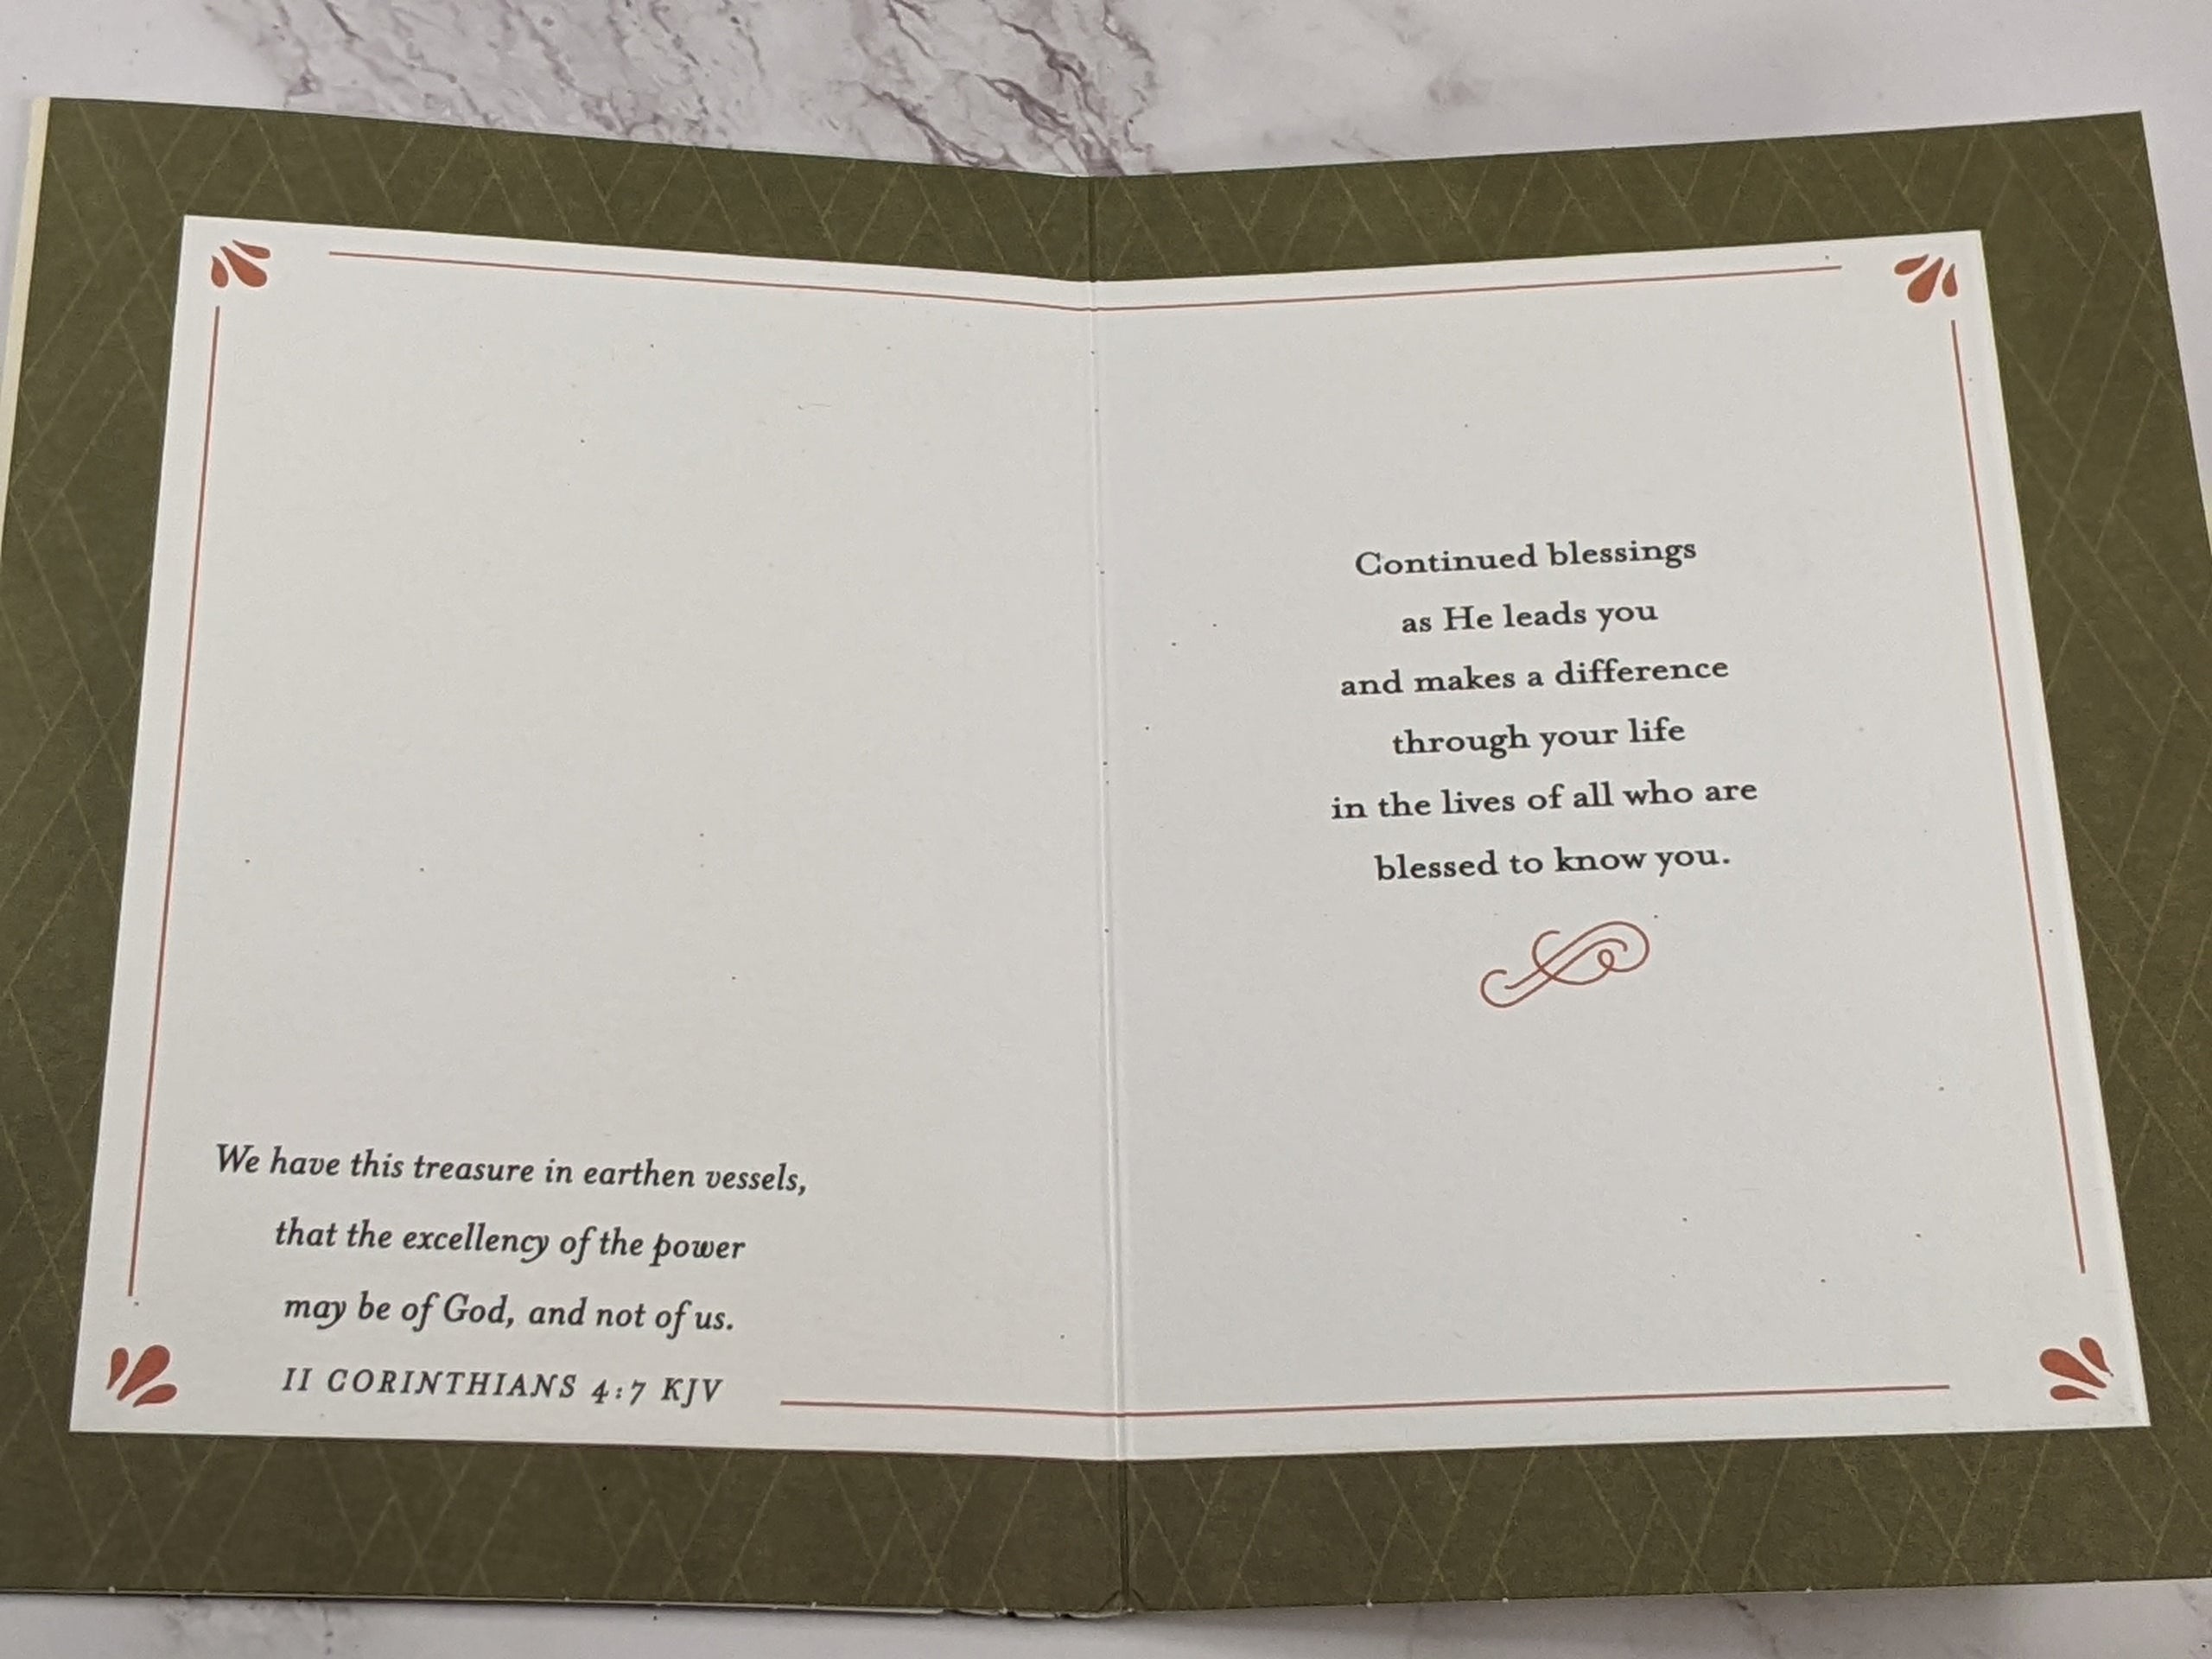 We have this treasure in earthen vessels,
that the excellency of the power
may be of God, and not of us.
II CORINTHIANS 4:7 KJV
Continued blessings
as He leads you
and makes a difference
through your life
in the lives of all who are
blessed to know you.